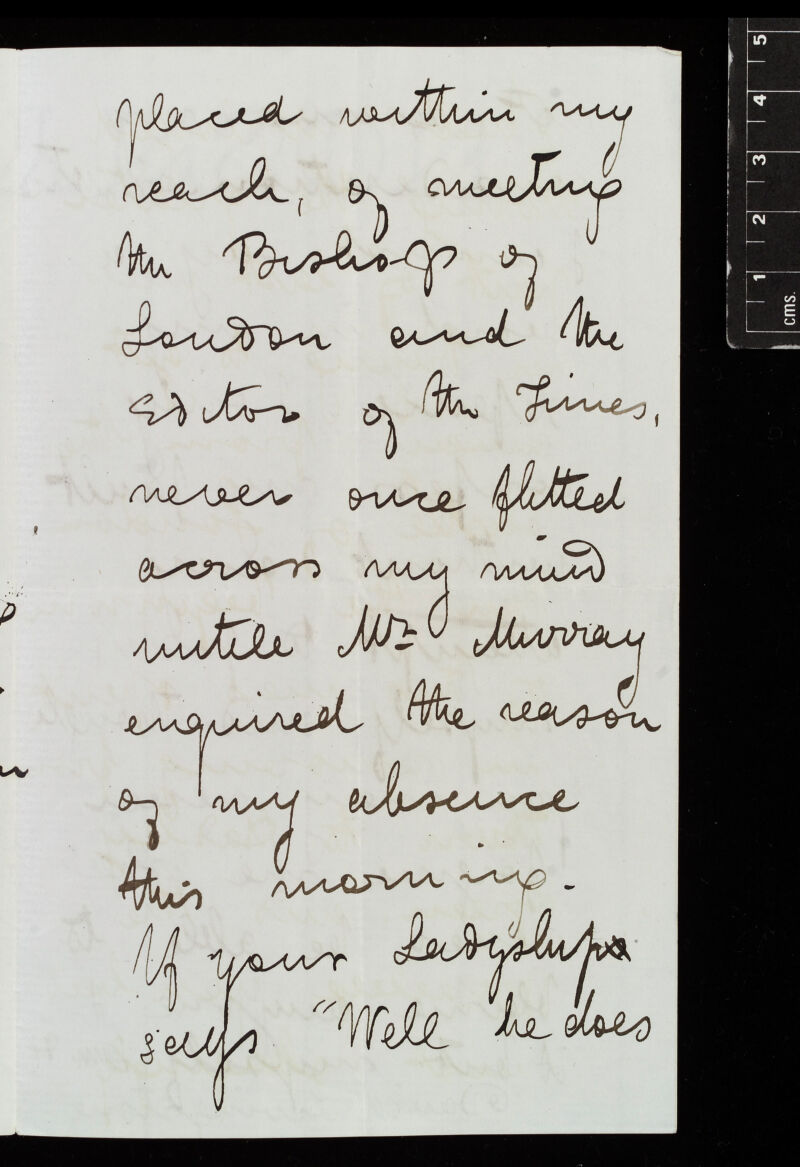 placed within my
reach, of meeting
the Bishop of
London and the
Editor of the Times,
never once flitted
across my mind
untill Mr Murray
enquired the reason
of my absence
this morning.
If your Ladyship
says "Well he does
5
4
3
2
1
cms.